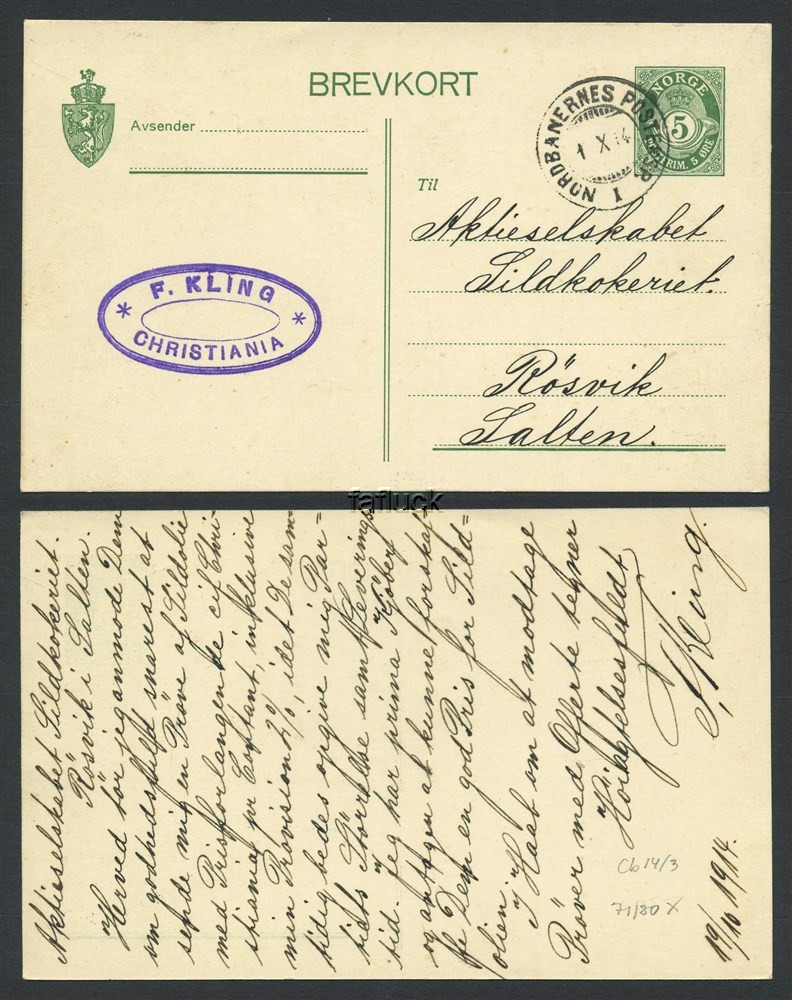 BREVKORT
Avsender
NORGE
5
FRIM. 5 ØRE
NORDBANERNES POSTEXP. I
1 X 14
Til
Aktieselskabet
Sildkokeriet.
Rösvik
Salten.
* F. KLING *
CHRISTIANIA
fafluck
Aktieselskabet Sildkokeriet.
Rösvik i Salten.
Herved tör jeg anmode Dem
om godhedsfuld snarest at
sende mig en Pröve af Sildolie
med Prisforlangende cif Chri-
stiania pr Contant, inklusive
min Provision 2%, idet De sam-
tidig bedes opgive mig Par=
tiets Störrelse samt Leverings
tid. Jeg har prima Kjöbere
og antager at kunne forskaf-
fe Dem en god Pris for Sild=
olien.
I Haab om at modtage
Pröver med Offerte tegner
Höiagtelsesfuldt
F. Kling.
19/10 1914.
Cb 14/3
71/80 X